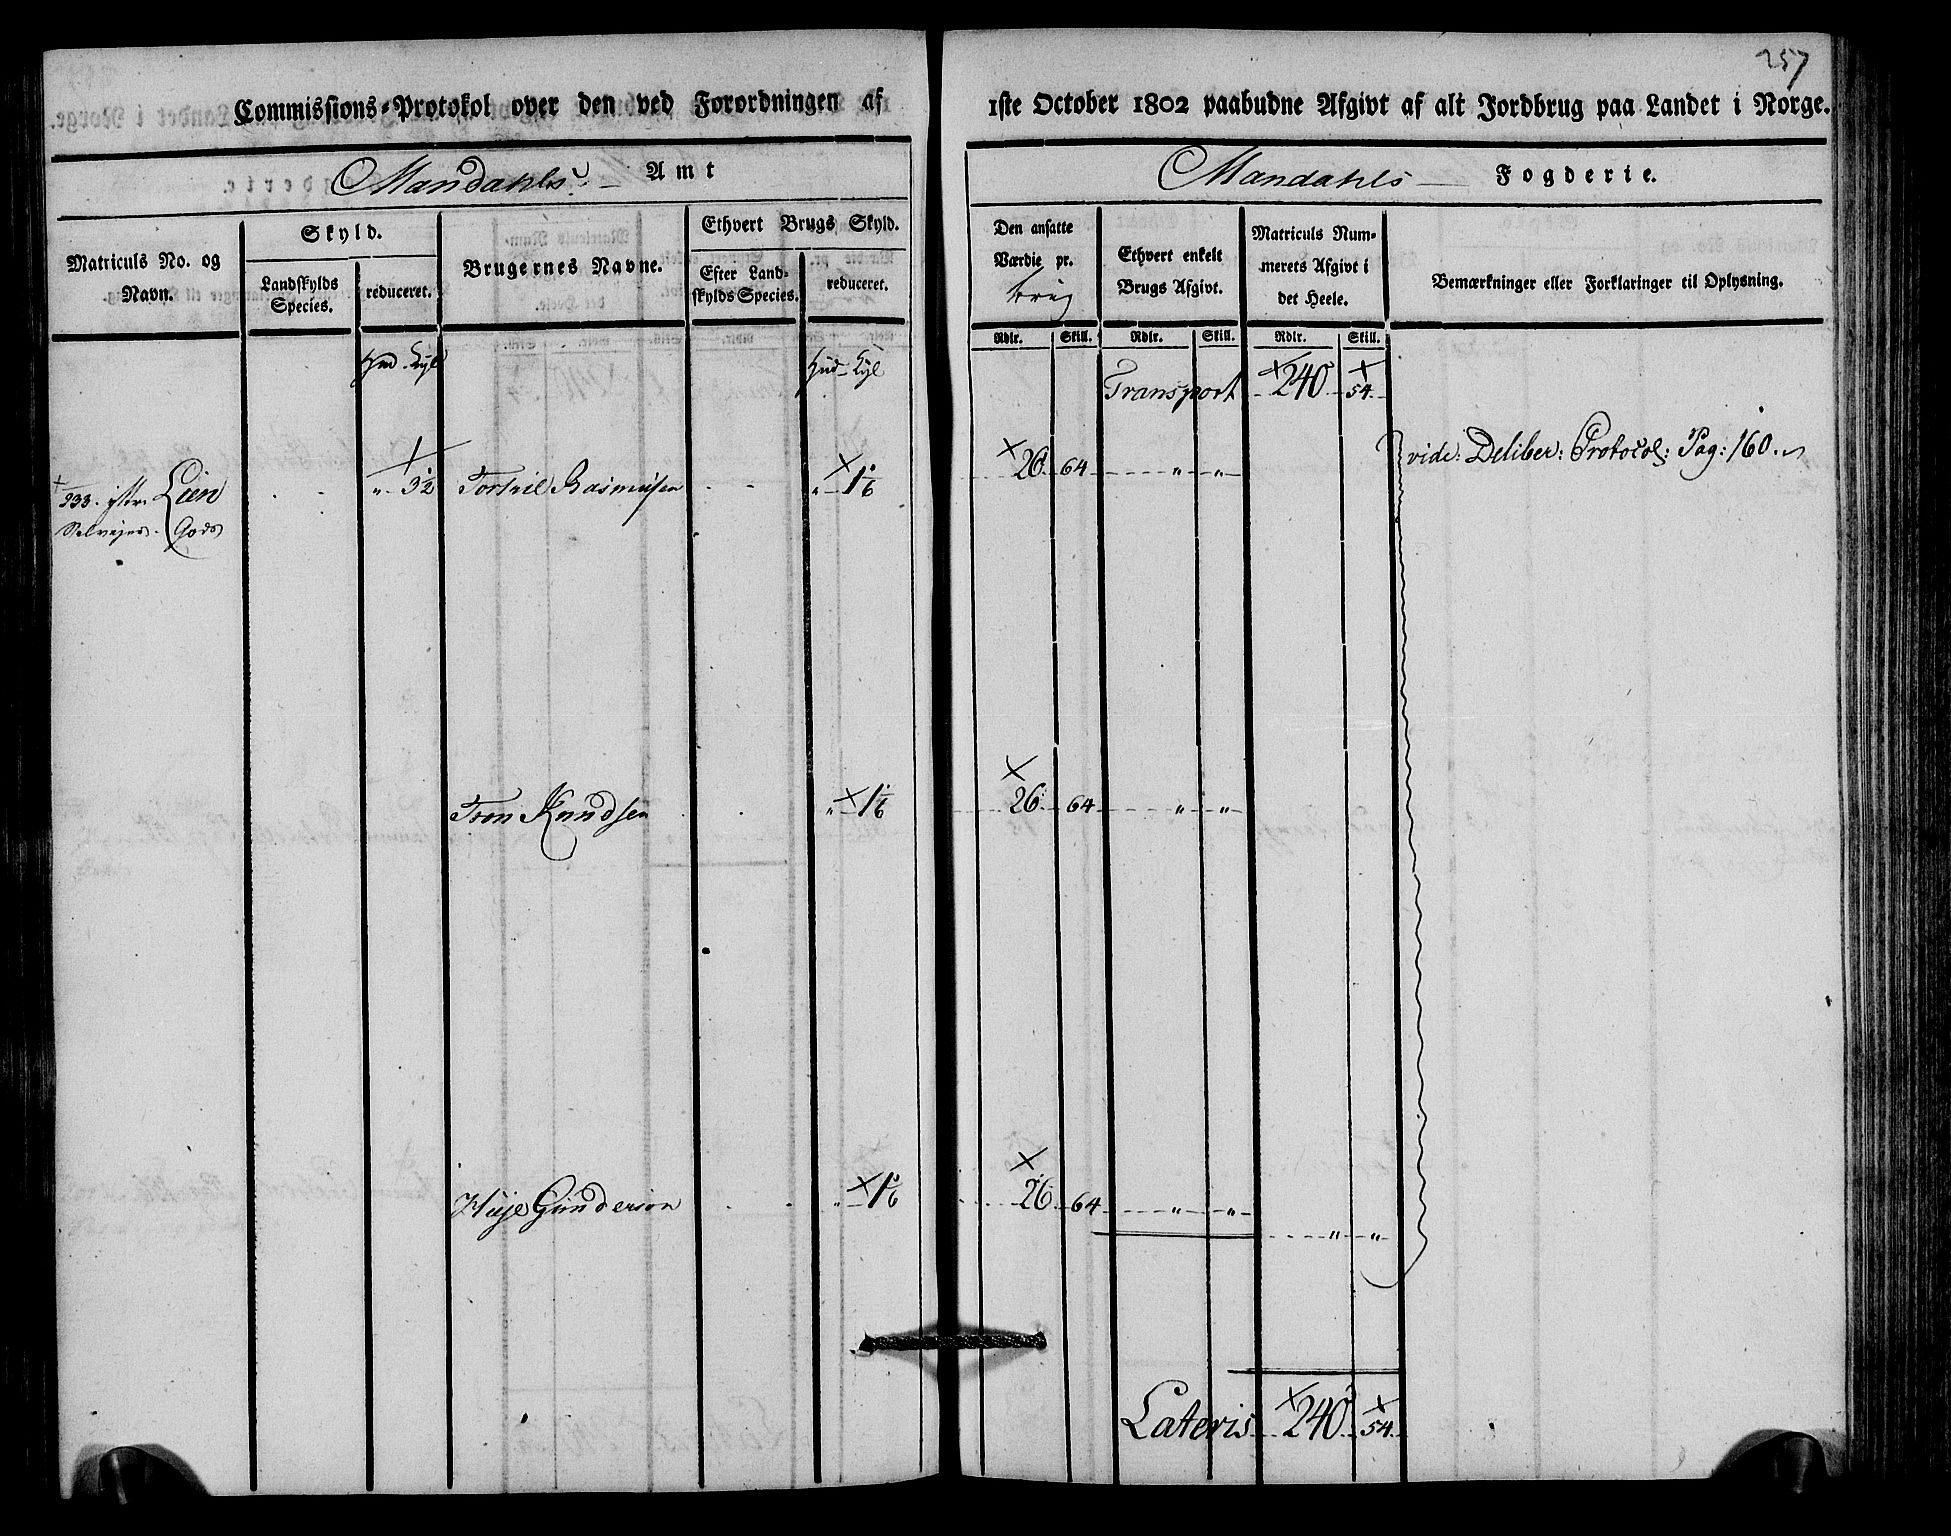 257
Commissions-Protokol over den ved Forordningen af 1ste October 1802 paabudne Afgivt af alt Jordbrug paa Landet i Norge.
Mandahls Amt
Mandahls Fogderie.
Matriculs No. og Navn.
Skyld.
Landskylds Species.
reduceret.
Brugernes Navne.
Ethvert Brugs Skyld.
Efter Landskylds Species.
reduceret.
Den ansatte Værdie pr.
Ethvert enkelt Brugs Afgivt.
Matriculs Nummerets Afgivt i det Heele.
Bemærkninger eller Forklaringer til Oplysning.
Rdlr. Skill. Rdlr. Skill. Rdlr. Skill.
Hud Hud
Transport 240 54.
233. Lien
Gods
" 3½ Rasmusen " 1 1/6 26 64 " " vide: Deliber: Protocol: Pag: 160.
Tron Knudsen " 1 1/6 26 64 " "
Gunderson " 1 1/6 26 64 " "
" "
Lateris 240 54.